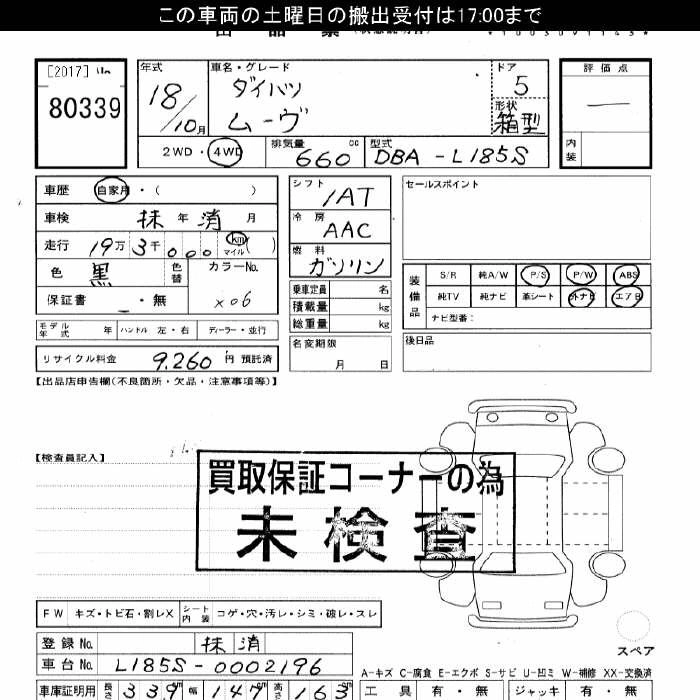 この車両の土曜日の搬出受付は17:00まで
出品票
[2017]
80339
年式
18/10月
車名・グレード
ダイハツ
ムーヴ
ドア
5
形状
箱型
評価点
内装
2WD・4WD
排気量
660
cc
型式
DBA-L185S
車歴 自家用・( )
車検 抹年消月
走行 19万3千000 km マイル( )
色 黒
色替
カラーNo.
X06
保証書 ・無
モデル年式 年 ハンドル 左・右 ディーラー・並行
リサイクル料金 9.260円 預託済
シフト
IAT
冷房
AAC
燃料
ガソリン
乗車定員 名
積載量 kg
総重量 kg
名変期限
月 日
セールスポイント
装備品
S/R 純A/W P/S P/W ABS
純TV 純ナビ 革シート 外ナビ エアB
ナビ型番:
後日品
【出品店申告欄(不良箇所・欠品・注意事項等)】
【検査員記入】
買取保証コーナーの為
未検査
FW キズ・トビ石・割レX シート内装 コゲ・穴・汚レ・シミ・破レ・スレ
登録No. 抹消
車台No. L185S-0002196
スペア
A-キズ C-腐食 E-エクボ S-サビ U-凹ミ W-補修 XX-交換済
車庫証明用 長さ 339cm 幅 147cm 高さ 163cm
工具 有・無 ジャッキ 有・無